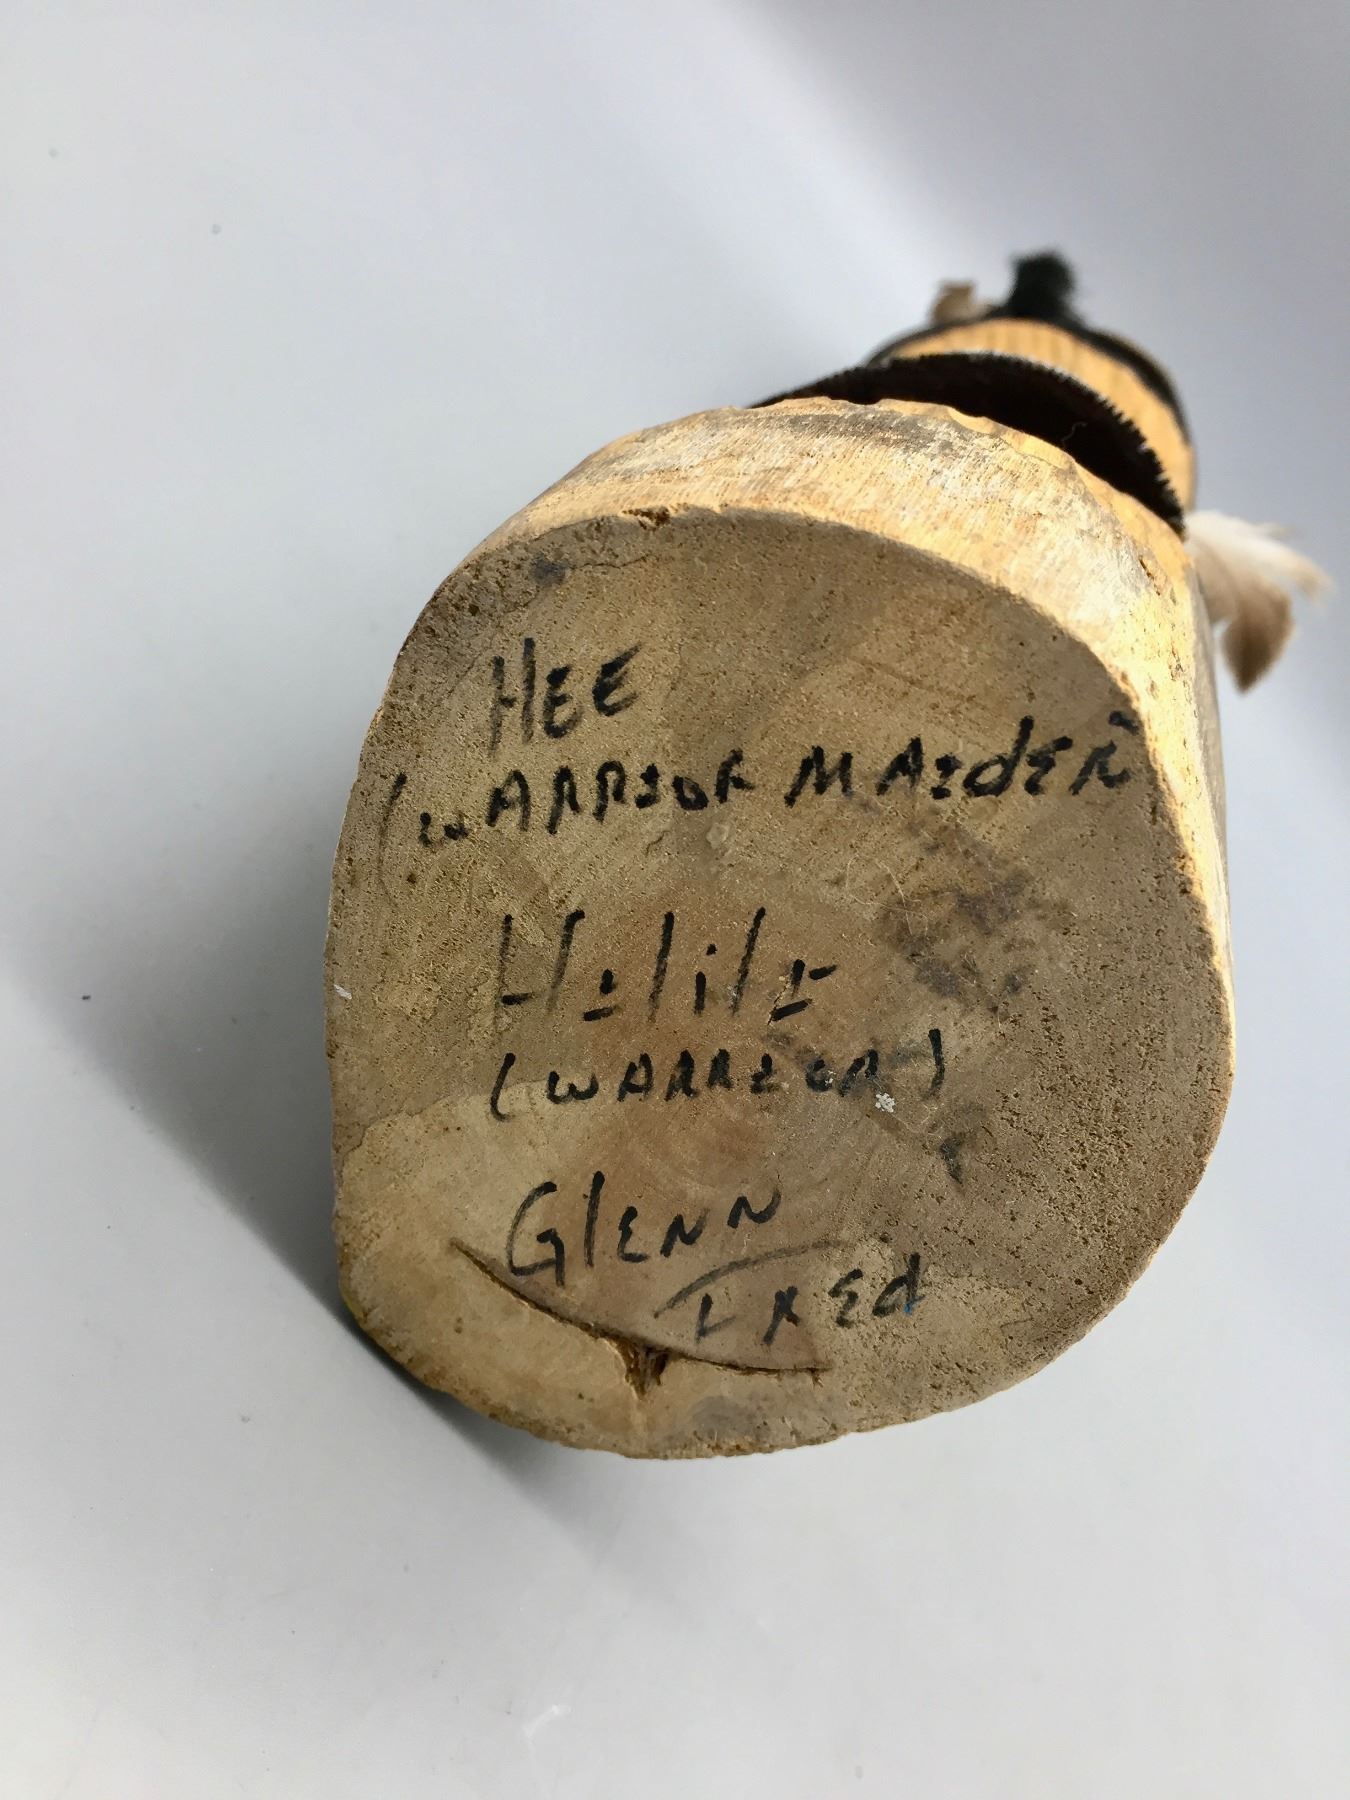 HEE
(WARRIOR MAIdEN
Hilili
(WARRIOR)
GlENN
FREd